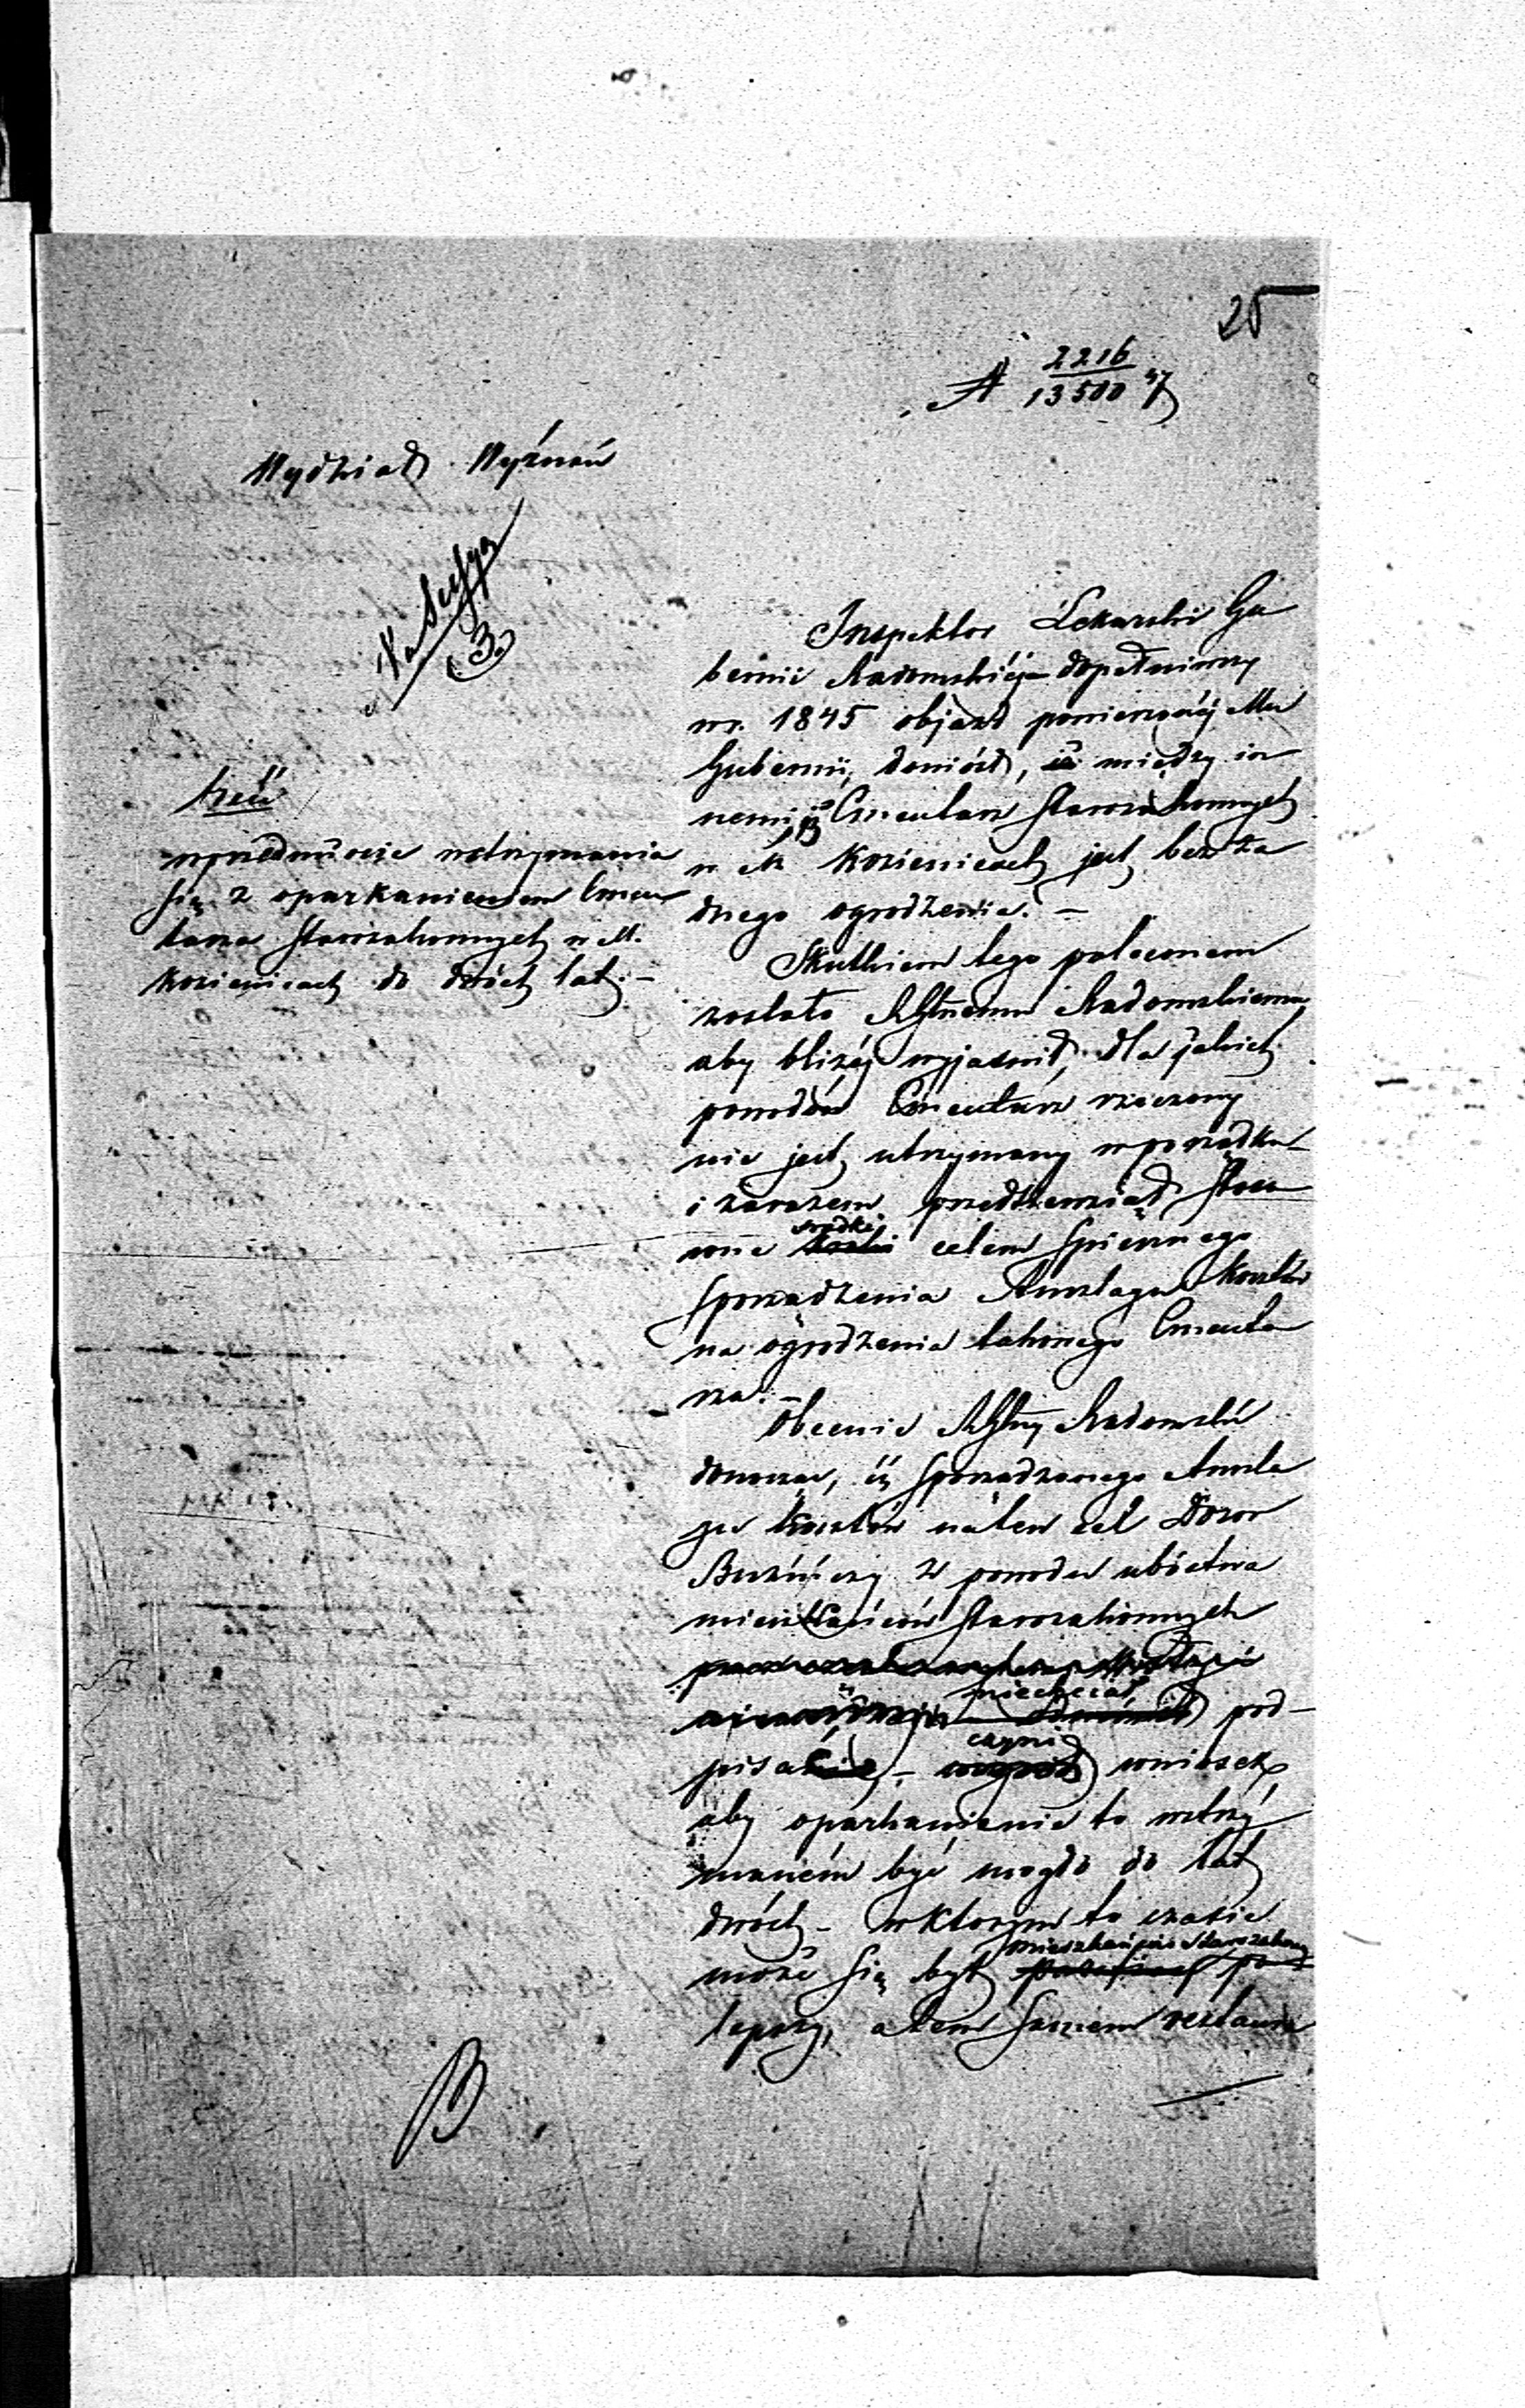 25
A 2216/13500 47
Wydział Wyznań
Na Sessyą
(3.)
treść
w przedmiocie wstrzymania
się z oparkanieniem Cmen
tarza Starozakonnych w M.
Kozienicach do dwóch lat.–
Inspektor Lekarski Gu
bernii Radomskiéj dopełniwszy
w r. 1845 objazd powierzonéj Mu
Gubernii, doniósł, że między in
nemi iż Cmentarz Starozakonnych
w M. Kozienicach jest bez ża
dnego ogrodzenia.–
Skutkiem tego poleconem
zostało Radomskiemu
aby bliżéj wyjaśnił, dla jakich
powodów Cmentarz rzeczony
nie jest utrzymany w porządku
i zarazem przedsięwziął stoso
wne środki celem spiesznego
sporządzenia Anszlagu kosztów
na ogrodzenia takowego Cmenta
rza.–
Obecnie Radomski
donosząc, iż sporządzonego Anszla
gu kosztów na ten cel Dozór
Bożniczy z powodu ubóstwa
mieszkańców Starozakonnych
niechciał pod-
pisać, – czyni wniosek
aby oparkanienie to wstrzy
maném być mogło do lat
dwóch – w ktorym to czasie
może się byt mieszkańców Starozakon
lepszy, a tem samem zostanie
B